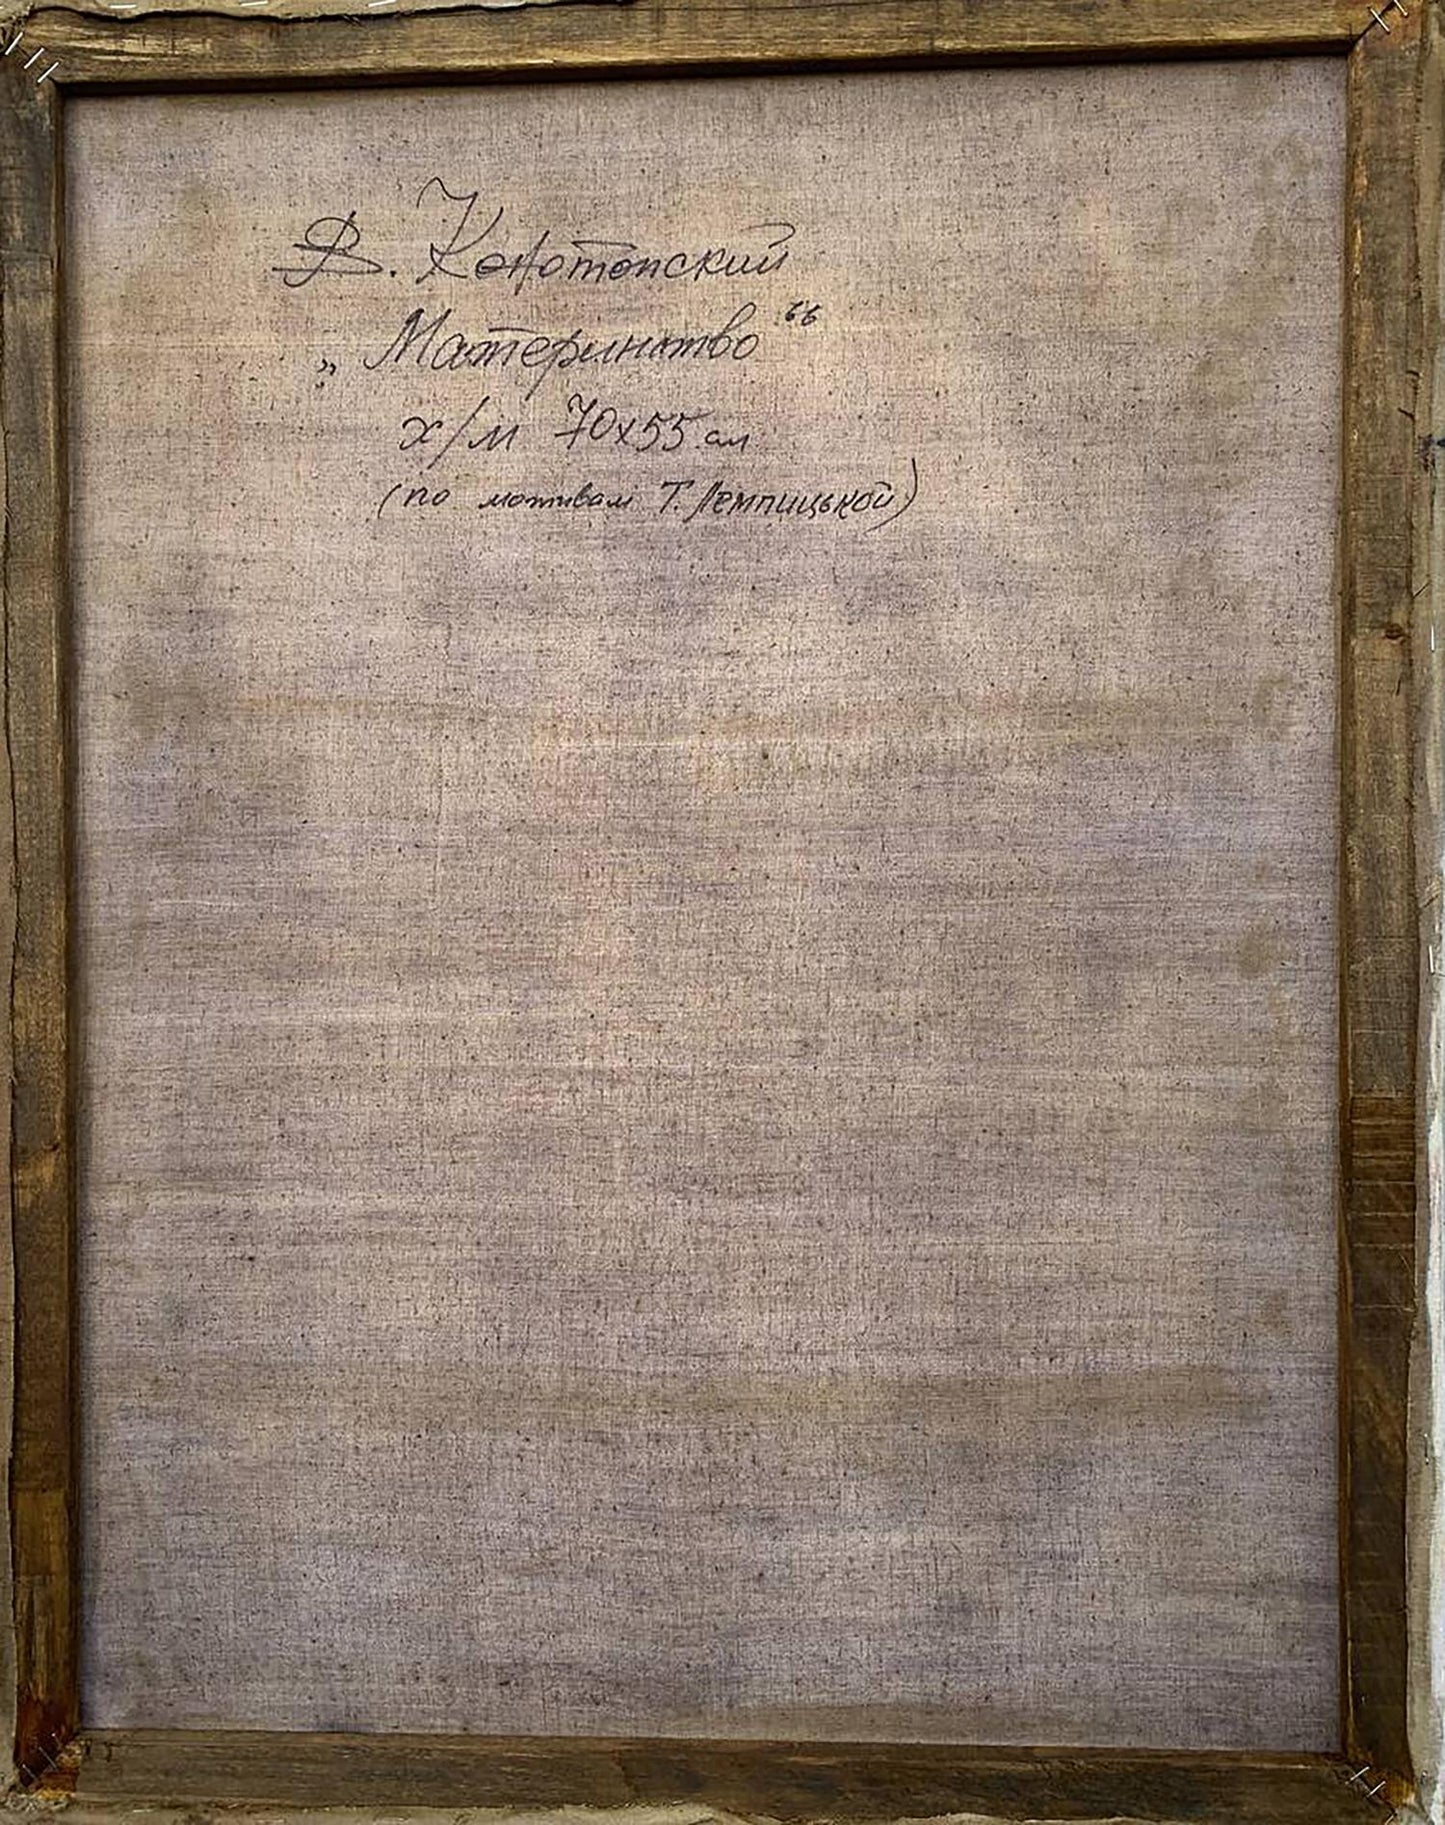 В. Конотопский
„Материнство“
х/м 70х55 см
(по мотивам Т. Лемпицькой)